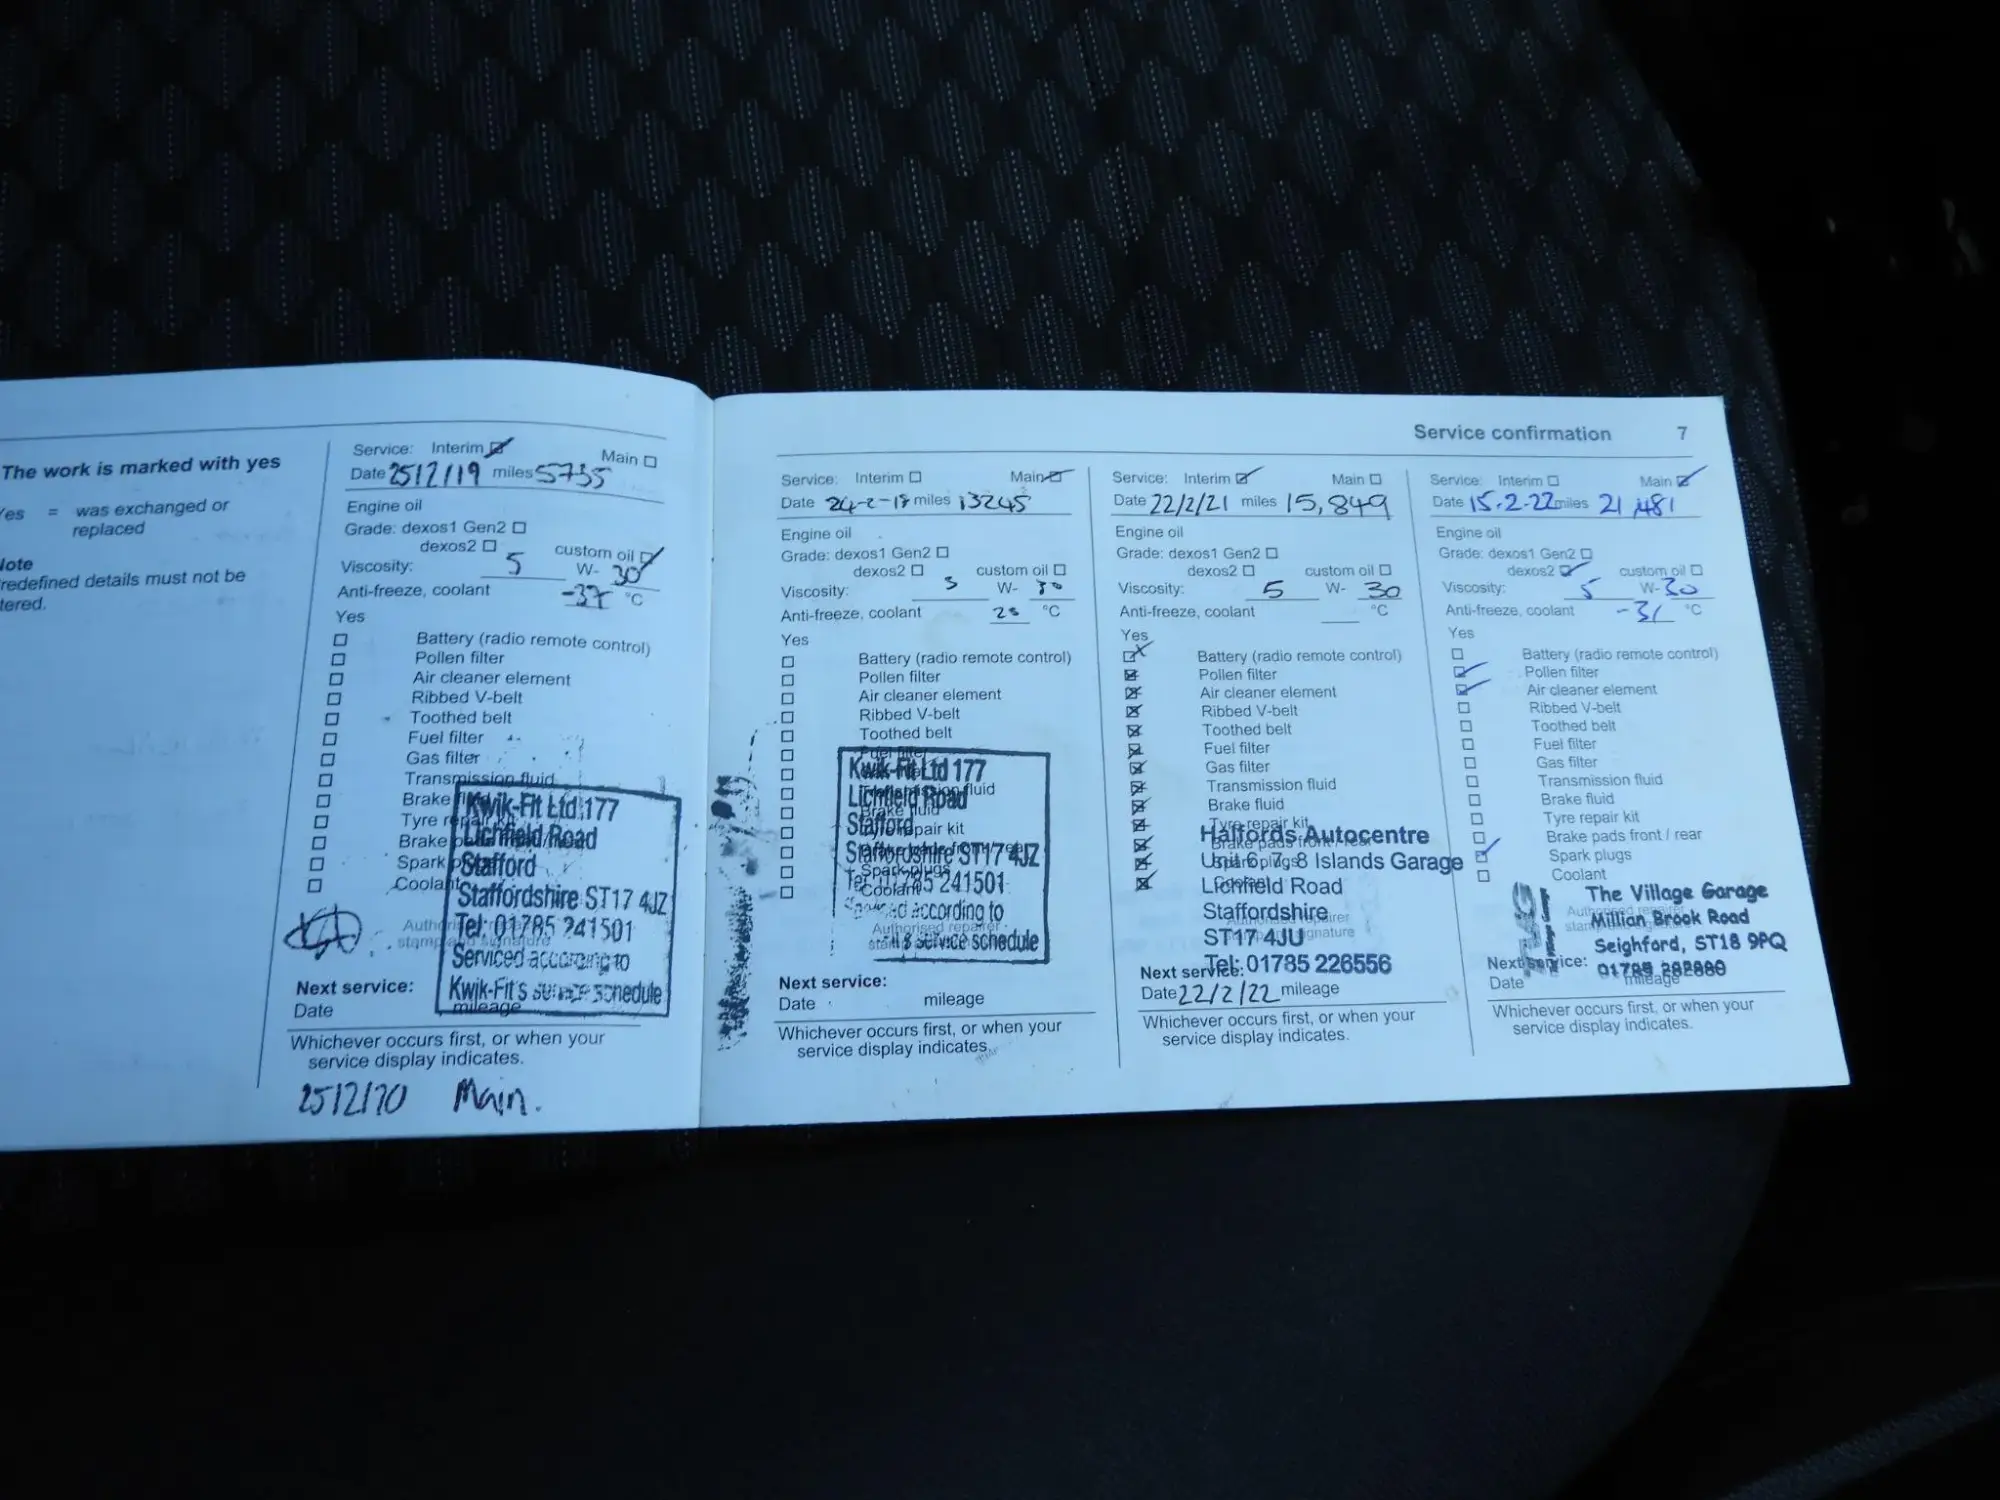 The work is marked with yes
= was exchanged or
replaced
redefined details must not be
Service: Interim Main
Date 25/2/19 miles 5735
Engine oil
Grade: dexos1 Gen2
dexos2 custom oil
Viscosity: 5 W- 30
Anti-freeze, coolant -37 °C
Yes
Battery (radio remote control)
Pollen filter
Air cleaner element
Ribbed V-belt
Toothed belt
Fuel filter
Gas filter
Transmission fluid
Brake
Tyre repair kit
Brake
Spark
Coolant
Kwik-Fit Ltd 177
Lichfield Road
Stafford
Staffordshire ST17 4JZ
Tel: 01785 241501
Serviced according to
Kwik-Fit's service schedule
stamp and signature
Next service:
Date mileage
Whichever occurs first, or when your
service display indicates.
25/2/20 Main.
Service confirmation 7
Service: Interim Main
Date 24-2-18 miles 13245
Engine oil
Grade: dexos1 Gen2
dexos2 custom oil
Viscosity: 5 W- 30
Anti-freeze, coolant 25 °C
Yes
Battery (radio remote control)
Pollen filter
Air cleaner element
Ribbed V-belt
Toothed belt
Fuel filter
Kwik-Fit Ltd 177
Lichfield Road
Brake fluid
Stafford
repair kit
Staffordshire ST17 4JZ
Spark plugs
Tel: 01785 241501
Coolant
according to
Authorised repairer
service schedule
Next service:
Date mileage
Whichever occurs first, or when your
service display indicates.
Service: Interim Main
Date 22/2/21 miles 15,849
Engine oil
Grade: dexos1 Gen2
dexos2 custom oil
Viscosity: 5 W- 30
Anti-freeze, coolant °C
Yes
Battery (radio remote control)
Pollen filter
Air cleaner element
Ribbed V-belt
Toothed belt
Fuel filter
Gas filter
Transmission fluid
Brake fluid
Tyre repair kit
Halfords Autocentre
Brake pads front / rear
Unit 6, 7, 8 Islands Garage
Spark plugs
Coolant
Lichfield Road
Staffordshire
ST17 4JU
signature
Tel: 01785 226556
Next service:
Date 22/2/22 mileage
Whichever occurs first, or when your
service display indicates.
Service: Interim Main
Date 15.2.22 miles 21,481
Engine oil
Grade: dexos1 Gen2
dexos2 custom oil
Viscosity: 5 W- 30
Anti-freeze, coolant -31 °C
Yes
Battery (radio remote control)
Pollen filter
Air cleaner element
Ribbed V-belt
Toothed belt
Fuel filter
Gas filter
Transmission fluid
Brake fluid
Tyre repair kit
Brake pads front / rear
Spark plugs
Coolant
The Village Garage
Authorised repairer
Millian Brook Road
Seighford, ST18 9PQ
Next service:
Date mileage
Whichever occurs first, or when your
service display indicates.